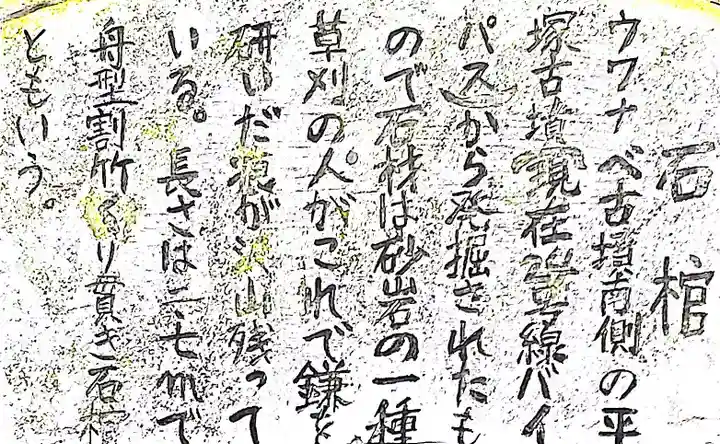 石棺
ウワナベ古墳南側の平
塚古墳(現在国道24号線バイ
パス)から発掘されたも
ので石材は砂岩の一種
草刈の人がこれで鎌を
研いだ痕が沢山残って
いる。長さは二・七mで
舟型割竹くり貫き石棺
ともいう。